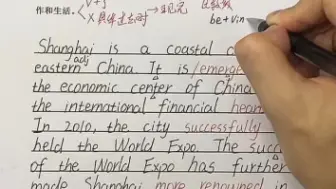 作和生活。
V+j
X具体重点时 → 
be+Vin
Shanghai is a coastal c
adj
eastern China. It is /emerge
the economic center of China
the international financial hear
In 2010, the city successfully
held the World Expo. The succ
of the World Expo has further
made Shanghai more renowned in